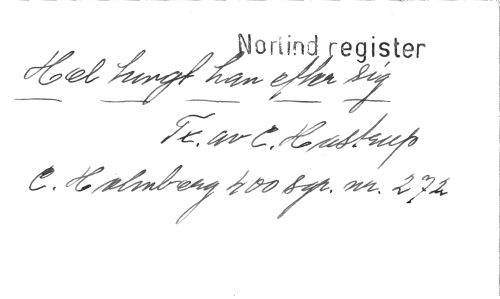 Norlind register
Hel hingl han efter sig
Tr. av C. Hustrup
C. Holmberg 400 sgr. nr. 272